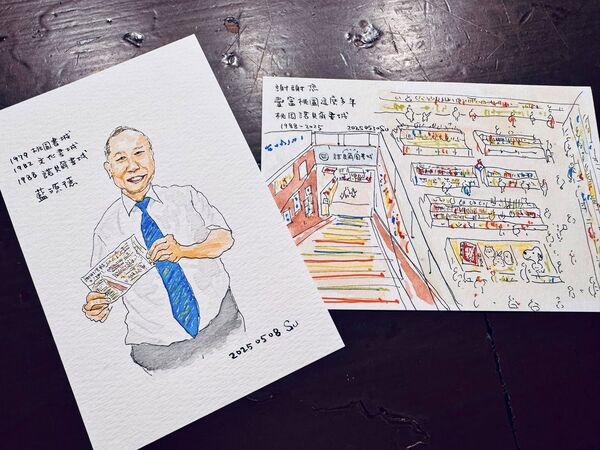 1979 桃園書城
1982 文化書城
1988 諾貝爾書城
藍源德
20250508 Su
謝謝您
豐富桃園這麼多年
桃園諾貝爾書城
1988-2025
諾貝爾書城